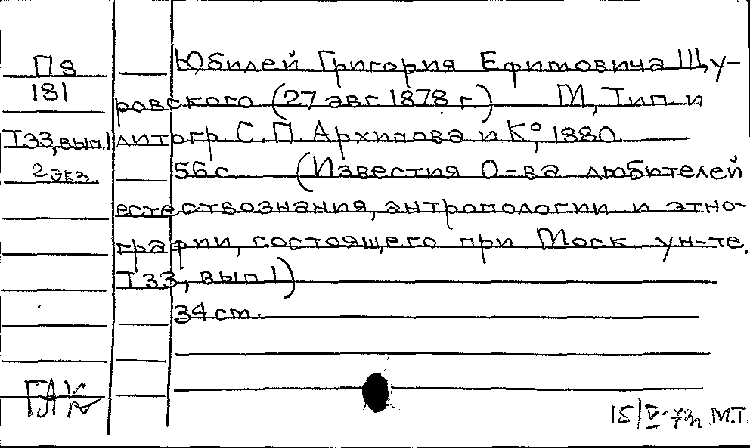 П8
181
Т33, вып.1
2 экз.
Юбилей Григория Ефимовича Щу-
ровского (27 авг. 1878 г.) М, Тип. и
литогр. С.П. Архипова и К°, 1880.
56 с. (Известия О-ва любителей
естествознания, антропологии и этно-
графии, состоящего при Моск. ун-те.
Т 33, вып 1)
34 см.
ГАК
15/V-73г. М.Т.